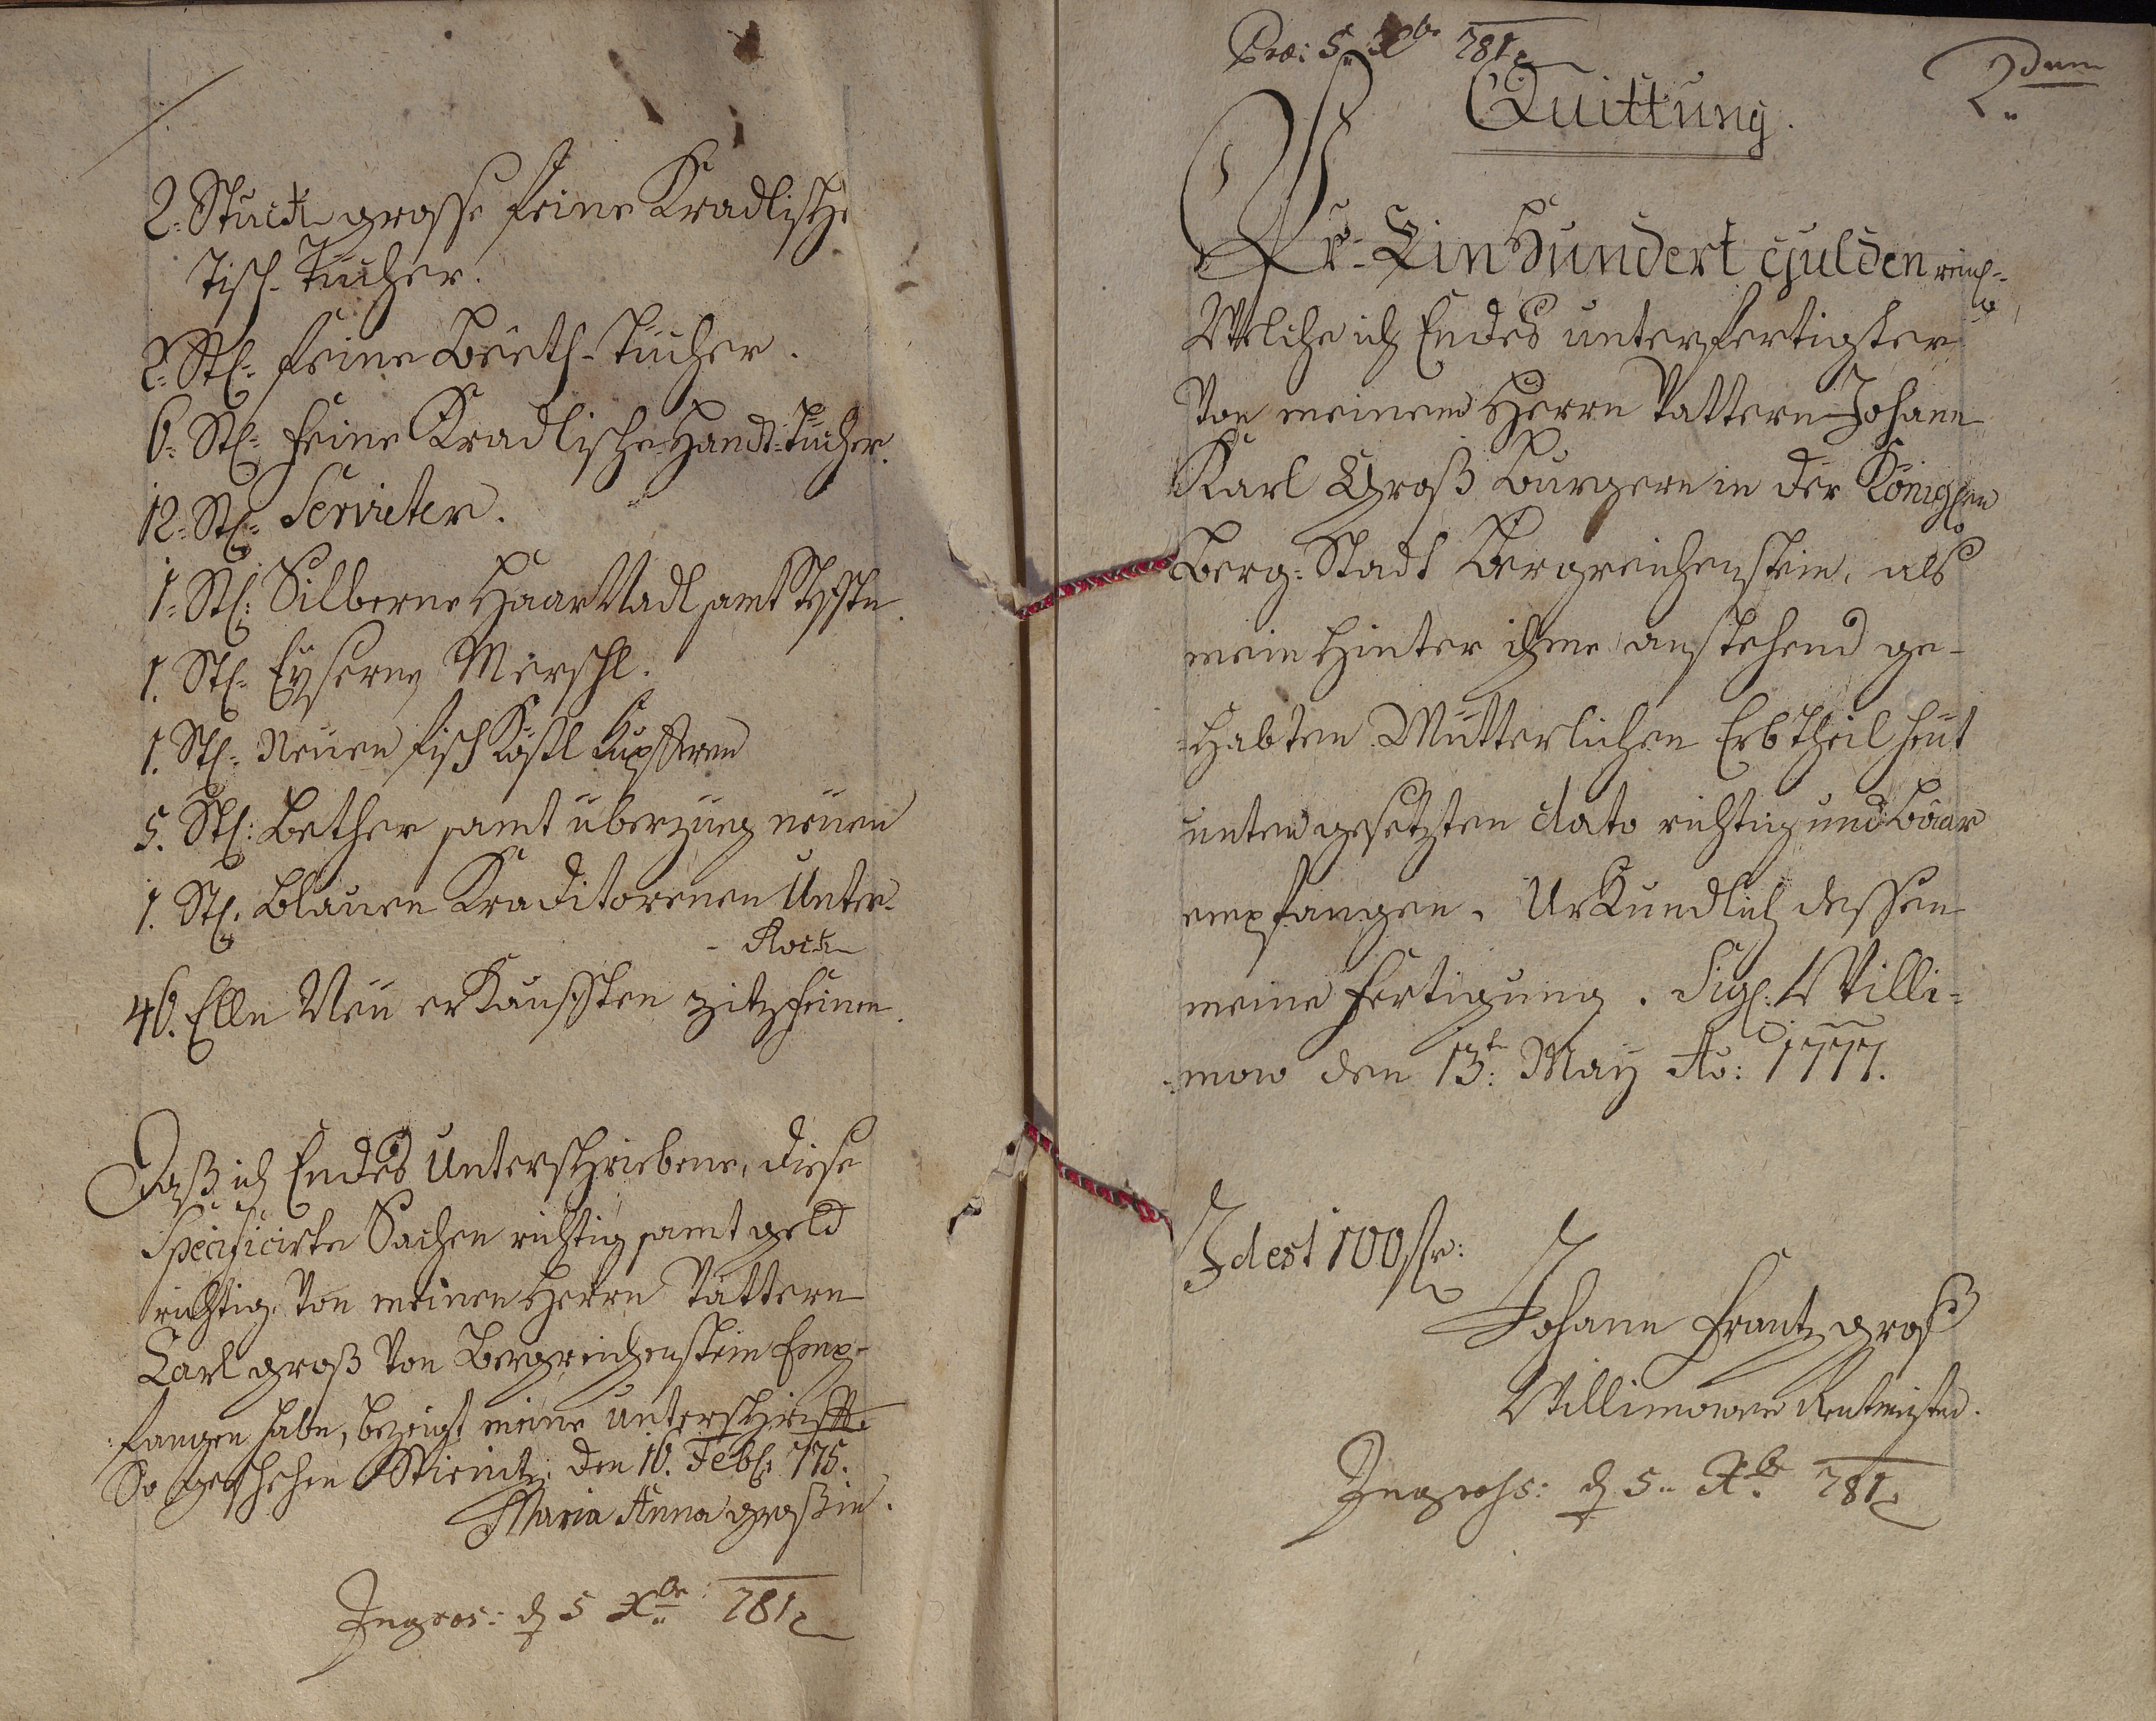 2. Stuck grosse feine Kradlische
Tisch-Tücher.
2. Stk: feine Beeth-Tücher.
6. Stk: feine Kradlische Handt-Tücher.
12. Stk: Servieter.
1. Stk: Silberne Haar Nadl samt
1. Stk: Eyserne Merschl.
1. Stk: Neuen fisch Kößl Kupfferen
5. Stk: Bether samt überzueg neuen
1. Stk: blauen Kraditorenen Unter-
- Rock
46. Elln Neu erkaufften zitz feinen.
Daß ich Endes Unterschriebene, diese
Specificirte Sachen richtig samt geld
richtig von meinen Herrn Vattern
Carl groß von Bergreichenstein Emp-
fangen habe, bezeigt meine unterschrifft.
So geschehen den 16. Feb: 775.
Maria Anna großin.
Ingros: d 5 Xbr: 781
Præ: 5. Xbr 781
2dum
Quittung.
Pr. Ein Hundert Gulden reinl:
Welche ich Endes unterfertigter
Von meinem Herrn Vattern Johann
Karl Groß burgern in der Königlen
Berg-Stadt Bergreichenstein, als
mein hinter ihme anstehend ge-
-habten Mütterlichen Erbtheil heut
unten gesetzten dato richtig und baar
empfangen. Urkundlich dessen
meine fertigung. Sigl: Willi-
-mow den 13t: May Ao: 1777.
Id est 100 fr:
Johann Frantz groß
Willimower Rentmeister.
Ingross: d 5. Xbr 781